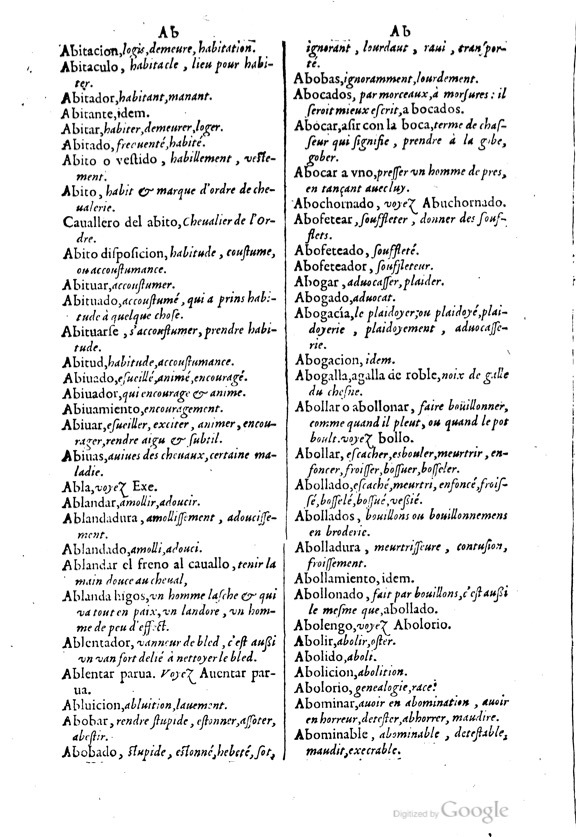 Ab
Abitacion, logis, demeure, habitation.
Abitaculo, habitacle, lieu pour habi-
ter.
Abitador, habitant, manant.
Abitante, idem.
Abitar, habiter, demeurer, loger.
Abitado, frecuenté, habité.
Abito o vestido, habillement, veste-
ment.
Abito, habit & marque d'ordre de che-
ualerie.
Cauallero del abito, Cheualier de l'Or-
dre.
Abito disposicion, habitude, coustume,
ou accoustumance.
Abituar, accoustumer.
Abituado, accoustumé, qui a prins habi-
tude à quelque chose.
Abituarse, s'accoustumer, prendre habi-
tude.
Abitud, habitude, accoustumance.
Abiuado, esueillé, animé, encouragé.
Abiuador, qui encourage & anime.
Abiuamiento, encouragement.
Abiuar, esueiller, exciter, animer, encou-
rager, rendre aigu & subtil.
Abiuas, auiues des cheuaux, certaine ma-
ladie.
Abla, voyez Exe.
Ablandar, amollir, adoucir.
Ablandadura, amollissement, adoucisse-
ment.
Ablandado, amolli, adouci.
Ablandar el freno al cauallo, tenir la
main douce au cheual,
Ablanda higos, vn homme lasche & qui
va tout en paix, vn landore, vn hom-
me de peu d'effect.
Ablentador, vanneur de bled, c'est aussi
vn van fort delié à nettoyer le bled.
Ablentar parua. Voyez Auentar par-
ua.
Abluicion, abluition, lauement.
Abobar, rendre stupide, estonner, assoter,
abestir.
Abobado, stupide, estonné, hebeté, sot,
Ab
ignorant, lourdaut, raui, transpor-
té.
Abobas, ignoramment, lourdement.
Abocados, par morceaux, à morsures: il
seroit mieux escrit, a bocados.
Abocar, asir con la boca, terme de chas-
seur qui signifie, prendre à la gobe,
gober.
Abocar a vno, presser vn homme de pres,
en tançant auec luy.
Abochornado, voyez Abuchornado.
Abofetear, souffleter, donner des souf-
flets.
Abofeteado, souffleté.
Abofeteador, souffleteur.
Abogar, aduocasser, plaider.
Abogado, aduocat.
Abogacía, le plaidoyer, ou plaidoyé, plai-
doyerie, plaidoyement, aduocasse-
rie.
Abogacion, idem.
Abogalla, agalla de roble, noix de galle
du chesne.
Abollar o abollonar, faire boüillonner,
comme quand il pleut, ou quand le pot
boult. voyez bollo.
Abollar, escacher, esbouler, meurtrir, en-
foncer, froisser, bossuer, bosseler.
Abollado, escaché, meurtri, enfoncé, frois-
sé, bosselé, bossué, vessié.
Abollados, bouillons ou bouillonnemens
en broderie.
Abolladura, meurtrisseure, contusion,
froissement.
Abollamiento, idem.
Abollonado, fait par bouillons, c'est aussi
le mesme que, abollado.
Abolengo, voyez Abolorio.
Abolir, abolir, oster.
Abolido, aboli.
Abolicion, abolition.
Abolorio, genealogie, race.
Abominar, auoir en abomination, auoir
en horreur, detester, abhorrer, maudire.
Abominable, abominable, detestable,
maudit, execrable.
Digitized by Google